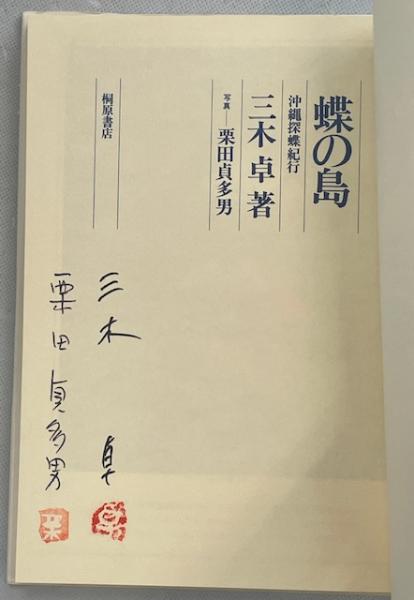 蝶の島
沖縄探蝶紀行
三木 卓 著
写真──栗田貞多男
桐原書店
三木 卓
栗田貞多男
卓
栗